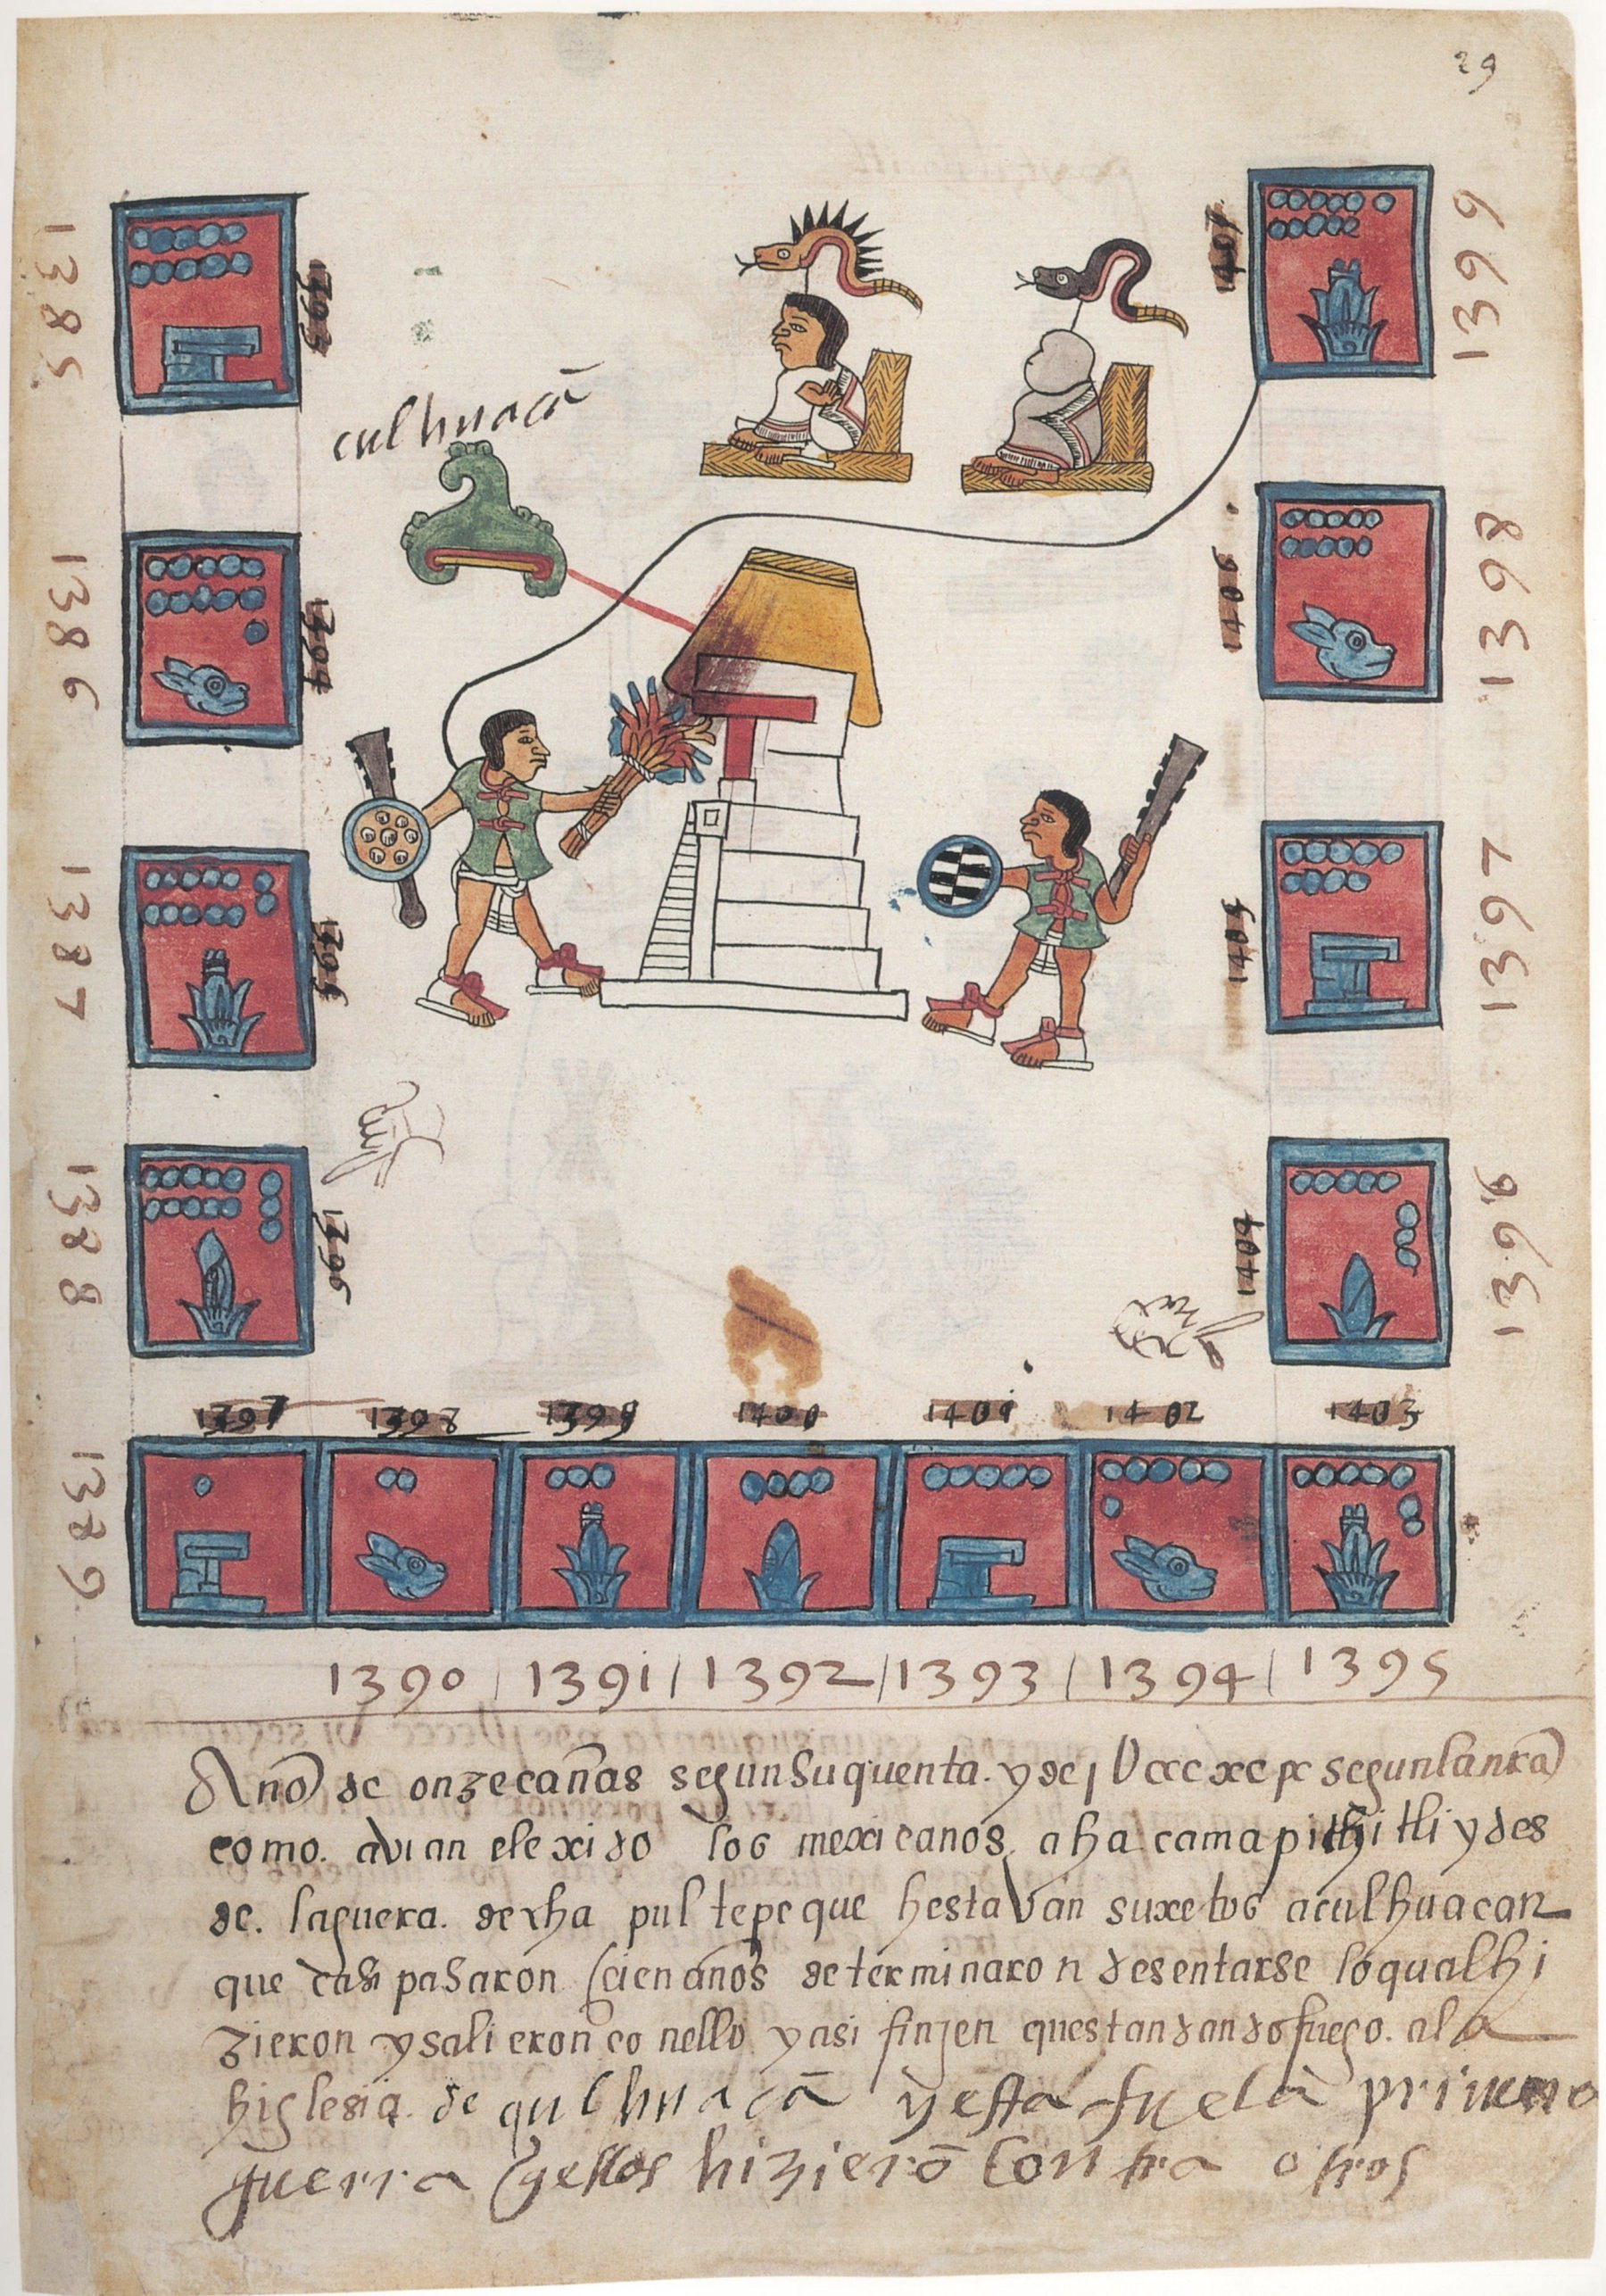 29
1385
1393
1386
1394
1387
1395
1388
1396
1389
culhuacā
1399
1398
1406
1397
1405
1396
1404
1397 1398 1399 1400 1401 1402 1403
1390 / 1391 / 1392 / 1393 / 1394 / 1395
Año de onze cañas segun su quenta. y de segun la nra
como. avian elexido los mexicanos, aha camapichitli y des
de. la guera. de cha pul tepe que hestaVan suxetos aculhuacan
que casi pasaron cien años determinaron desentarse lo qual hi
zieron y salieron co nello y asi finjen questan dando fuego. al a
higlesia. de qulhuacā y esta fue la primera
guerra qellos hizierō contra otros